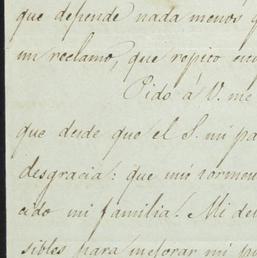 que depende nada menos q
un reclamo, que repito en
Pido á V. me
que desde que el S. mi pa
desgracia: que mis tormen
cido mi familia. Mi de
sibles para mejorar mi